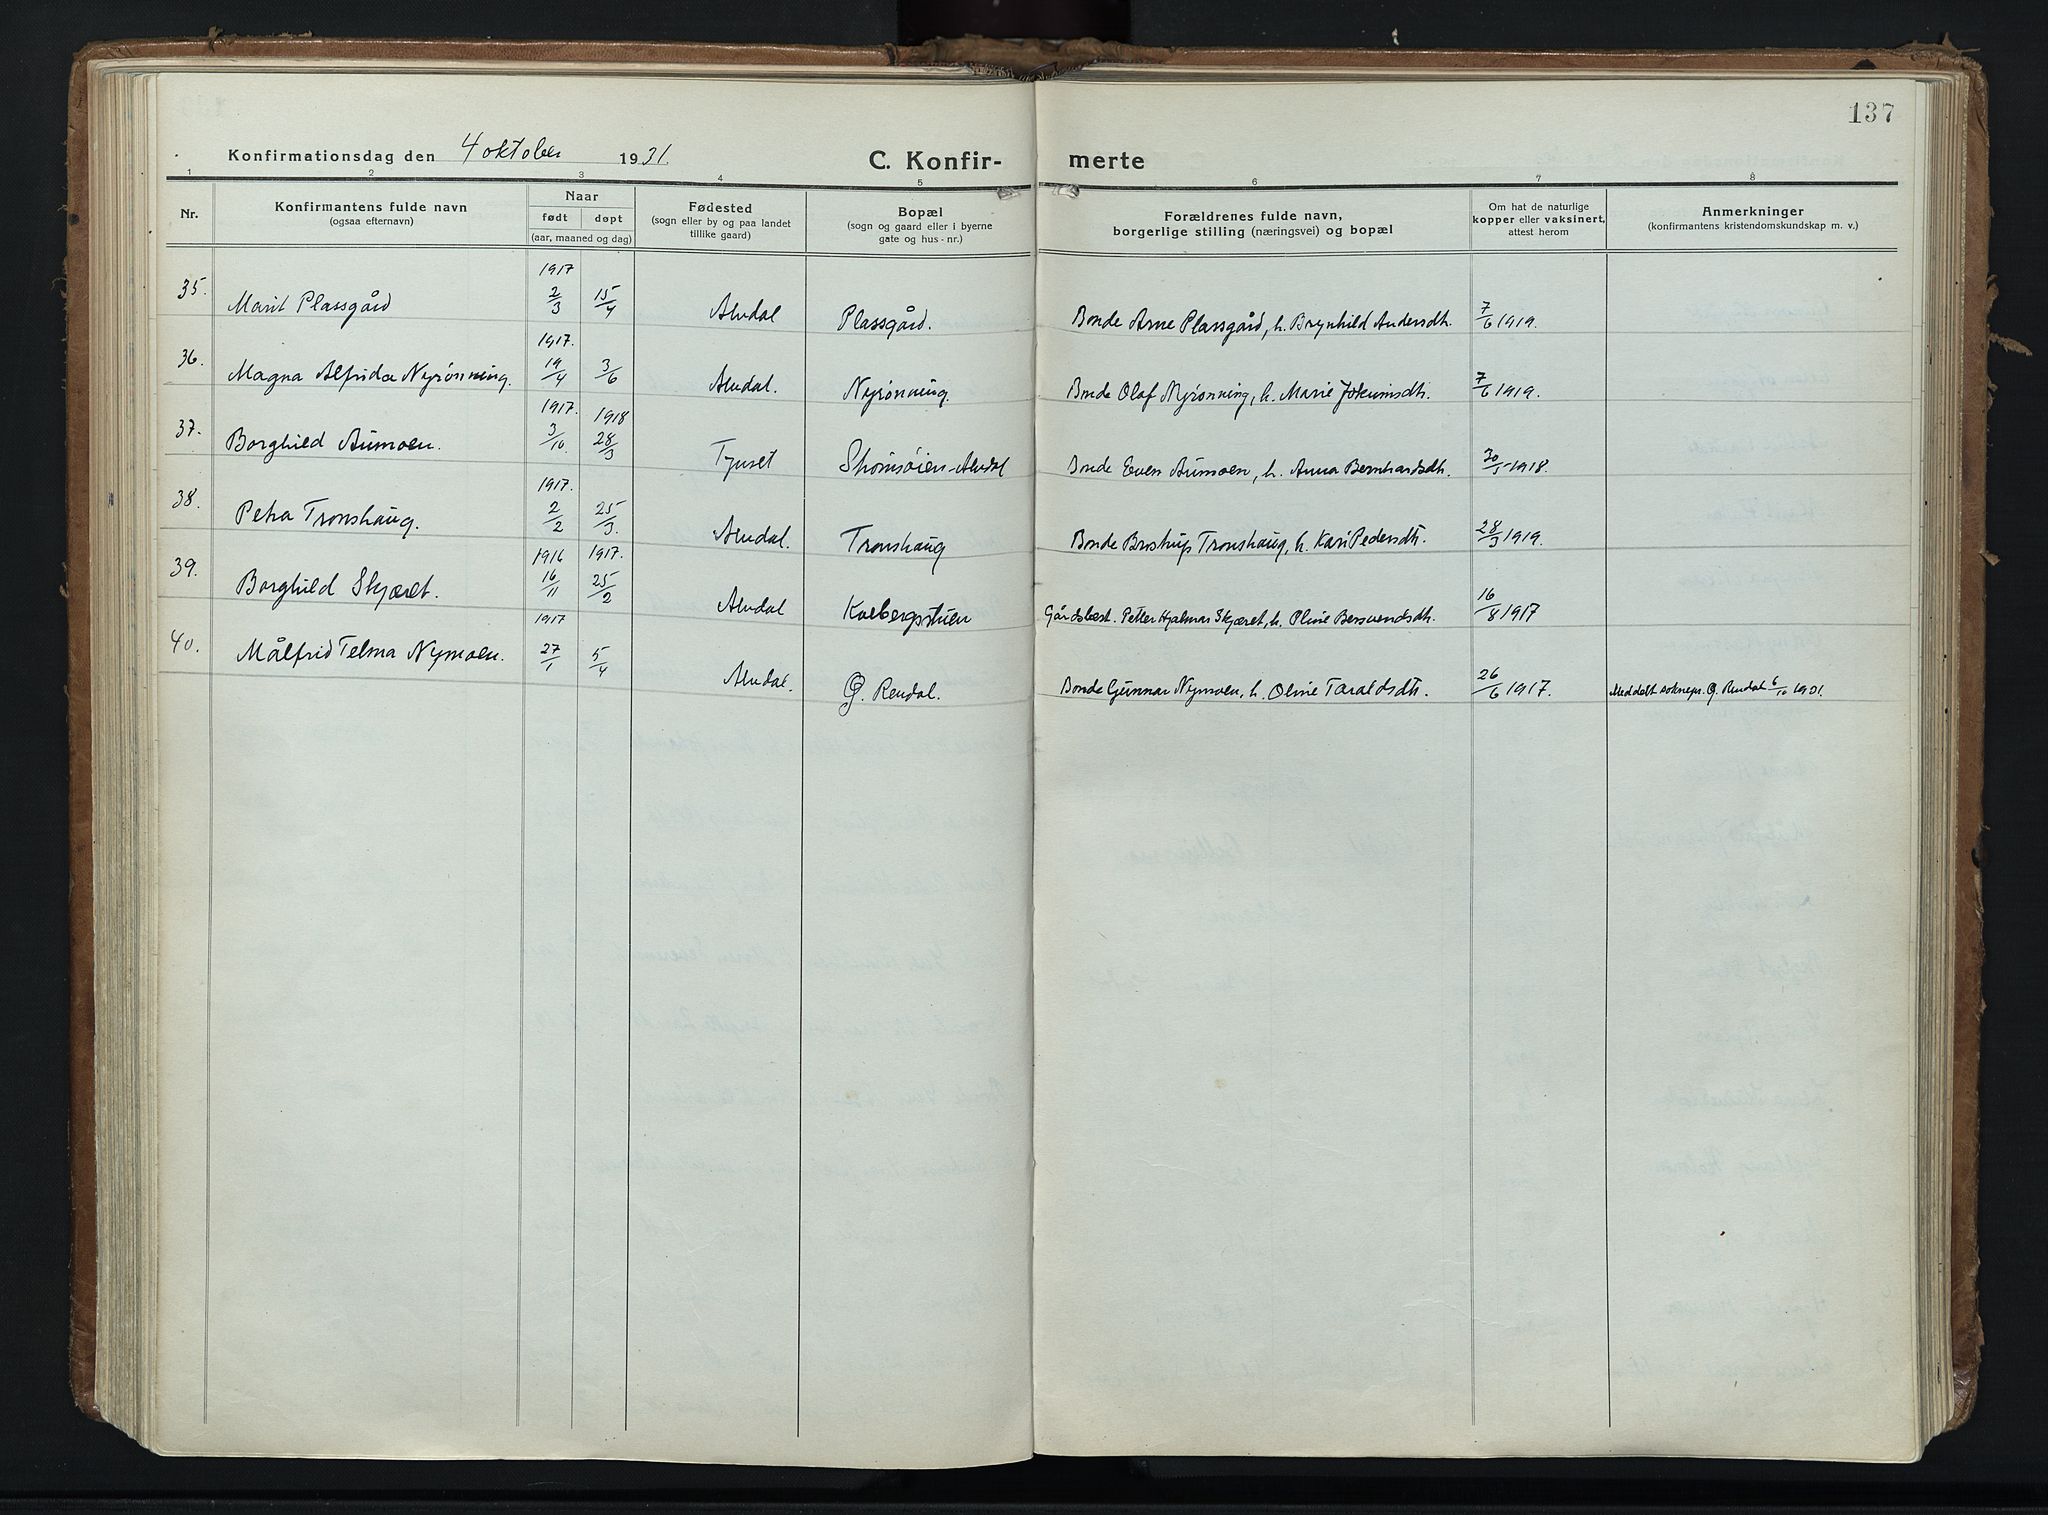 137
Konfirmationsdag den 4 oktober 1931.
C. Konfir- merte
1 2 3 4 5 6 7 8
Nr.
Konfirmantens fulde navn
(ogsaa efternavn)
Naar
født døpt
(aar, maaned og dag)
Fødested
(sogn eller by og paa landet
tillike gaard)
Bopæl
(sogn og gaard eller i byerne
gate og hus-nr.)
Forældrenes fulde navn,
borgerlige stilling (næringsvei) og bopæl
Om hat de naturlige
kopper eller vaksinert,
attest herom
Anmerkninger
(konfirmantens kristendomskundskap m. v.)
1917
35. Marit Plassgård 2/3 15/4 Alvdal Plassgård. Bonde Arne Plassgård, h. Brynhild Andersdtr. 7/6 1919.
1917.
36. Magna Alfrida Nyrønning. 19/4 3/6 Alvdal. Nyrønning. Bonde Olaf Nyrønning, h. Marie Jokumsdtr. 7/6 1919.
1917. 1918
37. Borghild Aumoen. 3/10. 28/3 Tynset Strømsøien-Alvdal Bonde Even Aumoen, h. Anna Bernhardsdtr. 30/5 1918.
1917.
38. Petra Tronshaug. 2/2 25/3 Alvdal. Tronshaug Bonde Brostrup Tronshaug, h. Kari Pedersdtr. 28/3 1919.
1916 1917.
39. Borghild Skjæret. 16/11 25/2 Alvdal Kolbergstuen Gårdsbest. Petter Hjalmar Skjæret, h. Oline Bersvendsdtr. 16/8 1917
1917
40. Målfrid Telma Nymoen. 27/1 5/4 Alvdal. Ø. Rendal. Bonde Gunnar Nymoen, h. Oline Taraldsdtr. 26/6 1917. Meddelt soknepr. Ø. Rendal 6/10 1931.